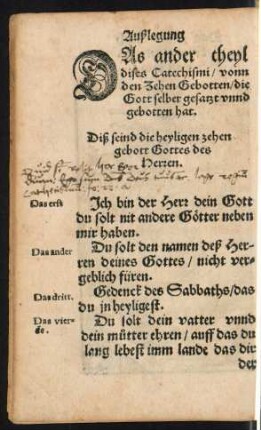 Außlegung
DAs ander theyl
dises Catechismi / vonn
den Zehen Gebotten / die
Gott selber gesatzt vnnd
gebotten hat.
Diß seind die heyligen zehen
gebott Gottes des
Herren.
Das erst
Ich bin der Herr dein Gott
du solt nit andere Götter neben
mir haben.
Das ander
Du solt den namen deß Her-
ren deines Gottes / nicht ver-
geblich füren.
Das dritt.
Gedenck des Sabbaths / das
du jn heyligest.
Das vier-
de.
Du solt dein vatter vnnd
dein mütter ehren / auff das du
lang lebest imm lande das dir
der